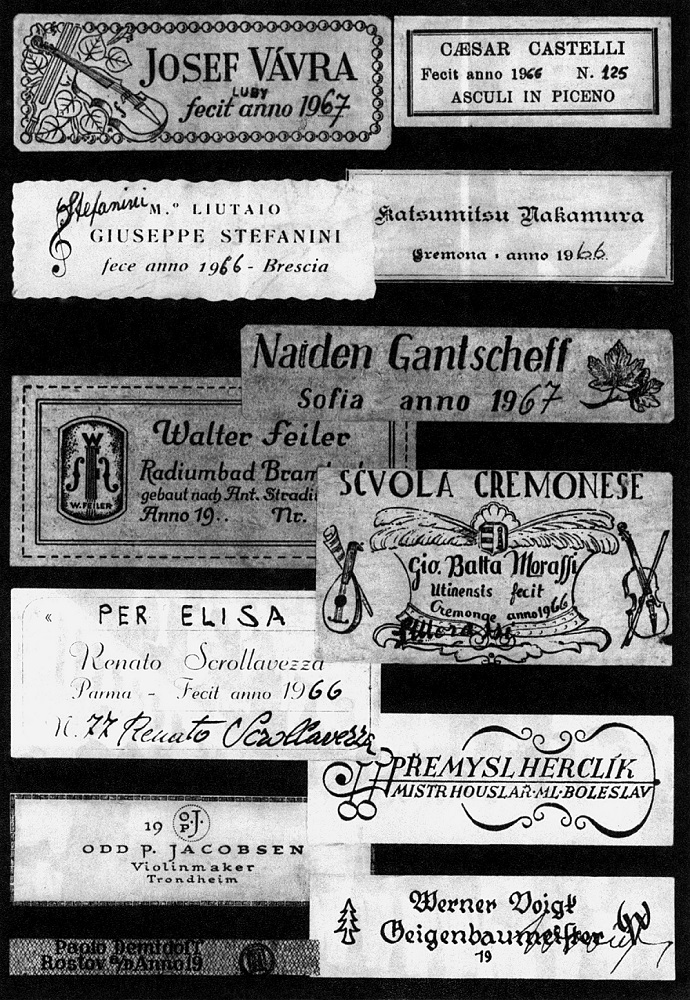 JOSEF VÁVRA
LUBY
fecit anno 1967
CÆSAR CASTELLI
Fecit anno 1966 N. 125
ASCULI IN PICENO
Stefanini
M.º LIUTAIO
GIUSEPPE STEFANINI
fece anno 1966 - Brescia
Katsumitsu Nakamura
Cremona · anno 1966
Naiden Gantscheff
Sofia anno 1967
W
W. FEILER
Walter Feiler
Radiumbad Bram
gebaut nach Ant. Stradi
Anno 19.. Nr.
SCVOLA CREMONESE
Gio. Batta Morassi
Utinensis fecit
Cremonae anno 1966
« PER ELISA
Renato Scrollavezza
Parma - Fecit anno 1966
N. 77 Renato Scrollavezza
PŘEMYSL HERCLÍK
MISTR HOUSLAŘ·ML·BOLESLAV
19 O.P.J.
ODD P. JACOBSEN
Violinmaker
Trondheim
Werner Voigt
Geigenbaumeister
19
Paolo Demidoff
Rostov a/D Anno 19